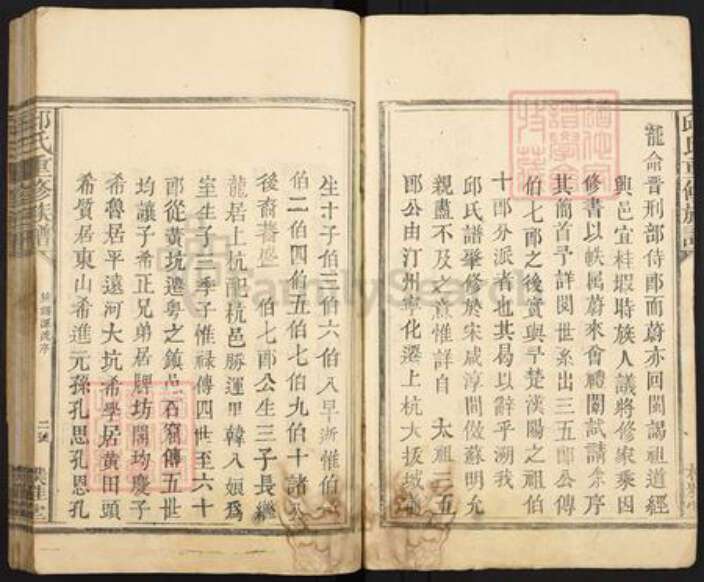 寵命晉刑部侍郎而蔚亦回閩謁祖道經
興邑宜桂嘏時族人議將修家乘因
修書以軼屬蔚來會禮闈試請余序
其簡首予詳閱世系出三五郎公傳
伯七郎之後實與予楚漢陽之祖伯
十郎分派者也其曷以辭乎溯我
邱氏譜肇修於宋咸淳間倣蘇明允
親盡不及之意惟詳自 太祖三五
郎公由汀州寧化遷上杭大拔域
生十子伯三伯六伯八早逝惟伯
伯二伯四伯五伯七伯九伯十諸公
後裔蕃盛 伯七郎公生三子長繼
龍居上杭配杭邑勝運里韓八娘爲
室生子三季子惟祿傳四世至六十
郎從黃坑遷粵之鎮邑石窟傳五世
均讓子希正兄弟居牌坊閣均慶子
希魯居平遠河大坑希學居黃田頭
希質居東山希進元孫孔思孔恩孔
邱氏重修族譜
族譜源流序
FamilySearch